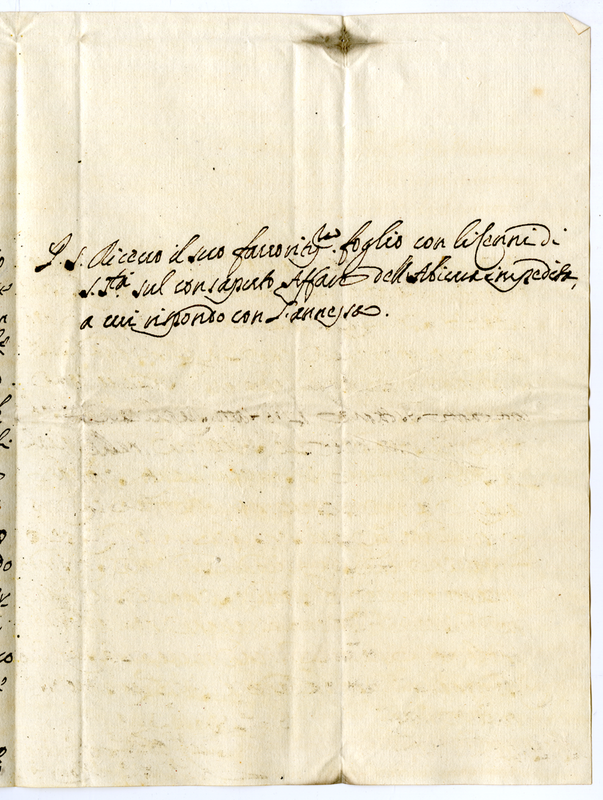 P. S. Ricevo il suo favorit.mo foglio con li Cenni di
S. Stà sul consaputo Affare dell'
a cui rispondo con l'annessa.